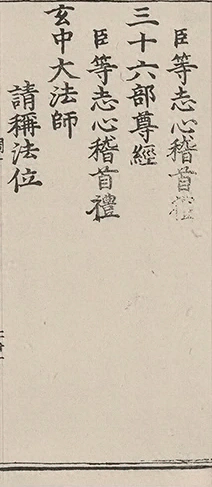 臣等志心稽首禮
三十六部尊經
臣等志心稽首禮
玄中大法師
請稱法位